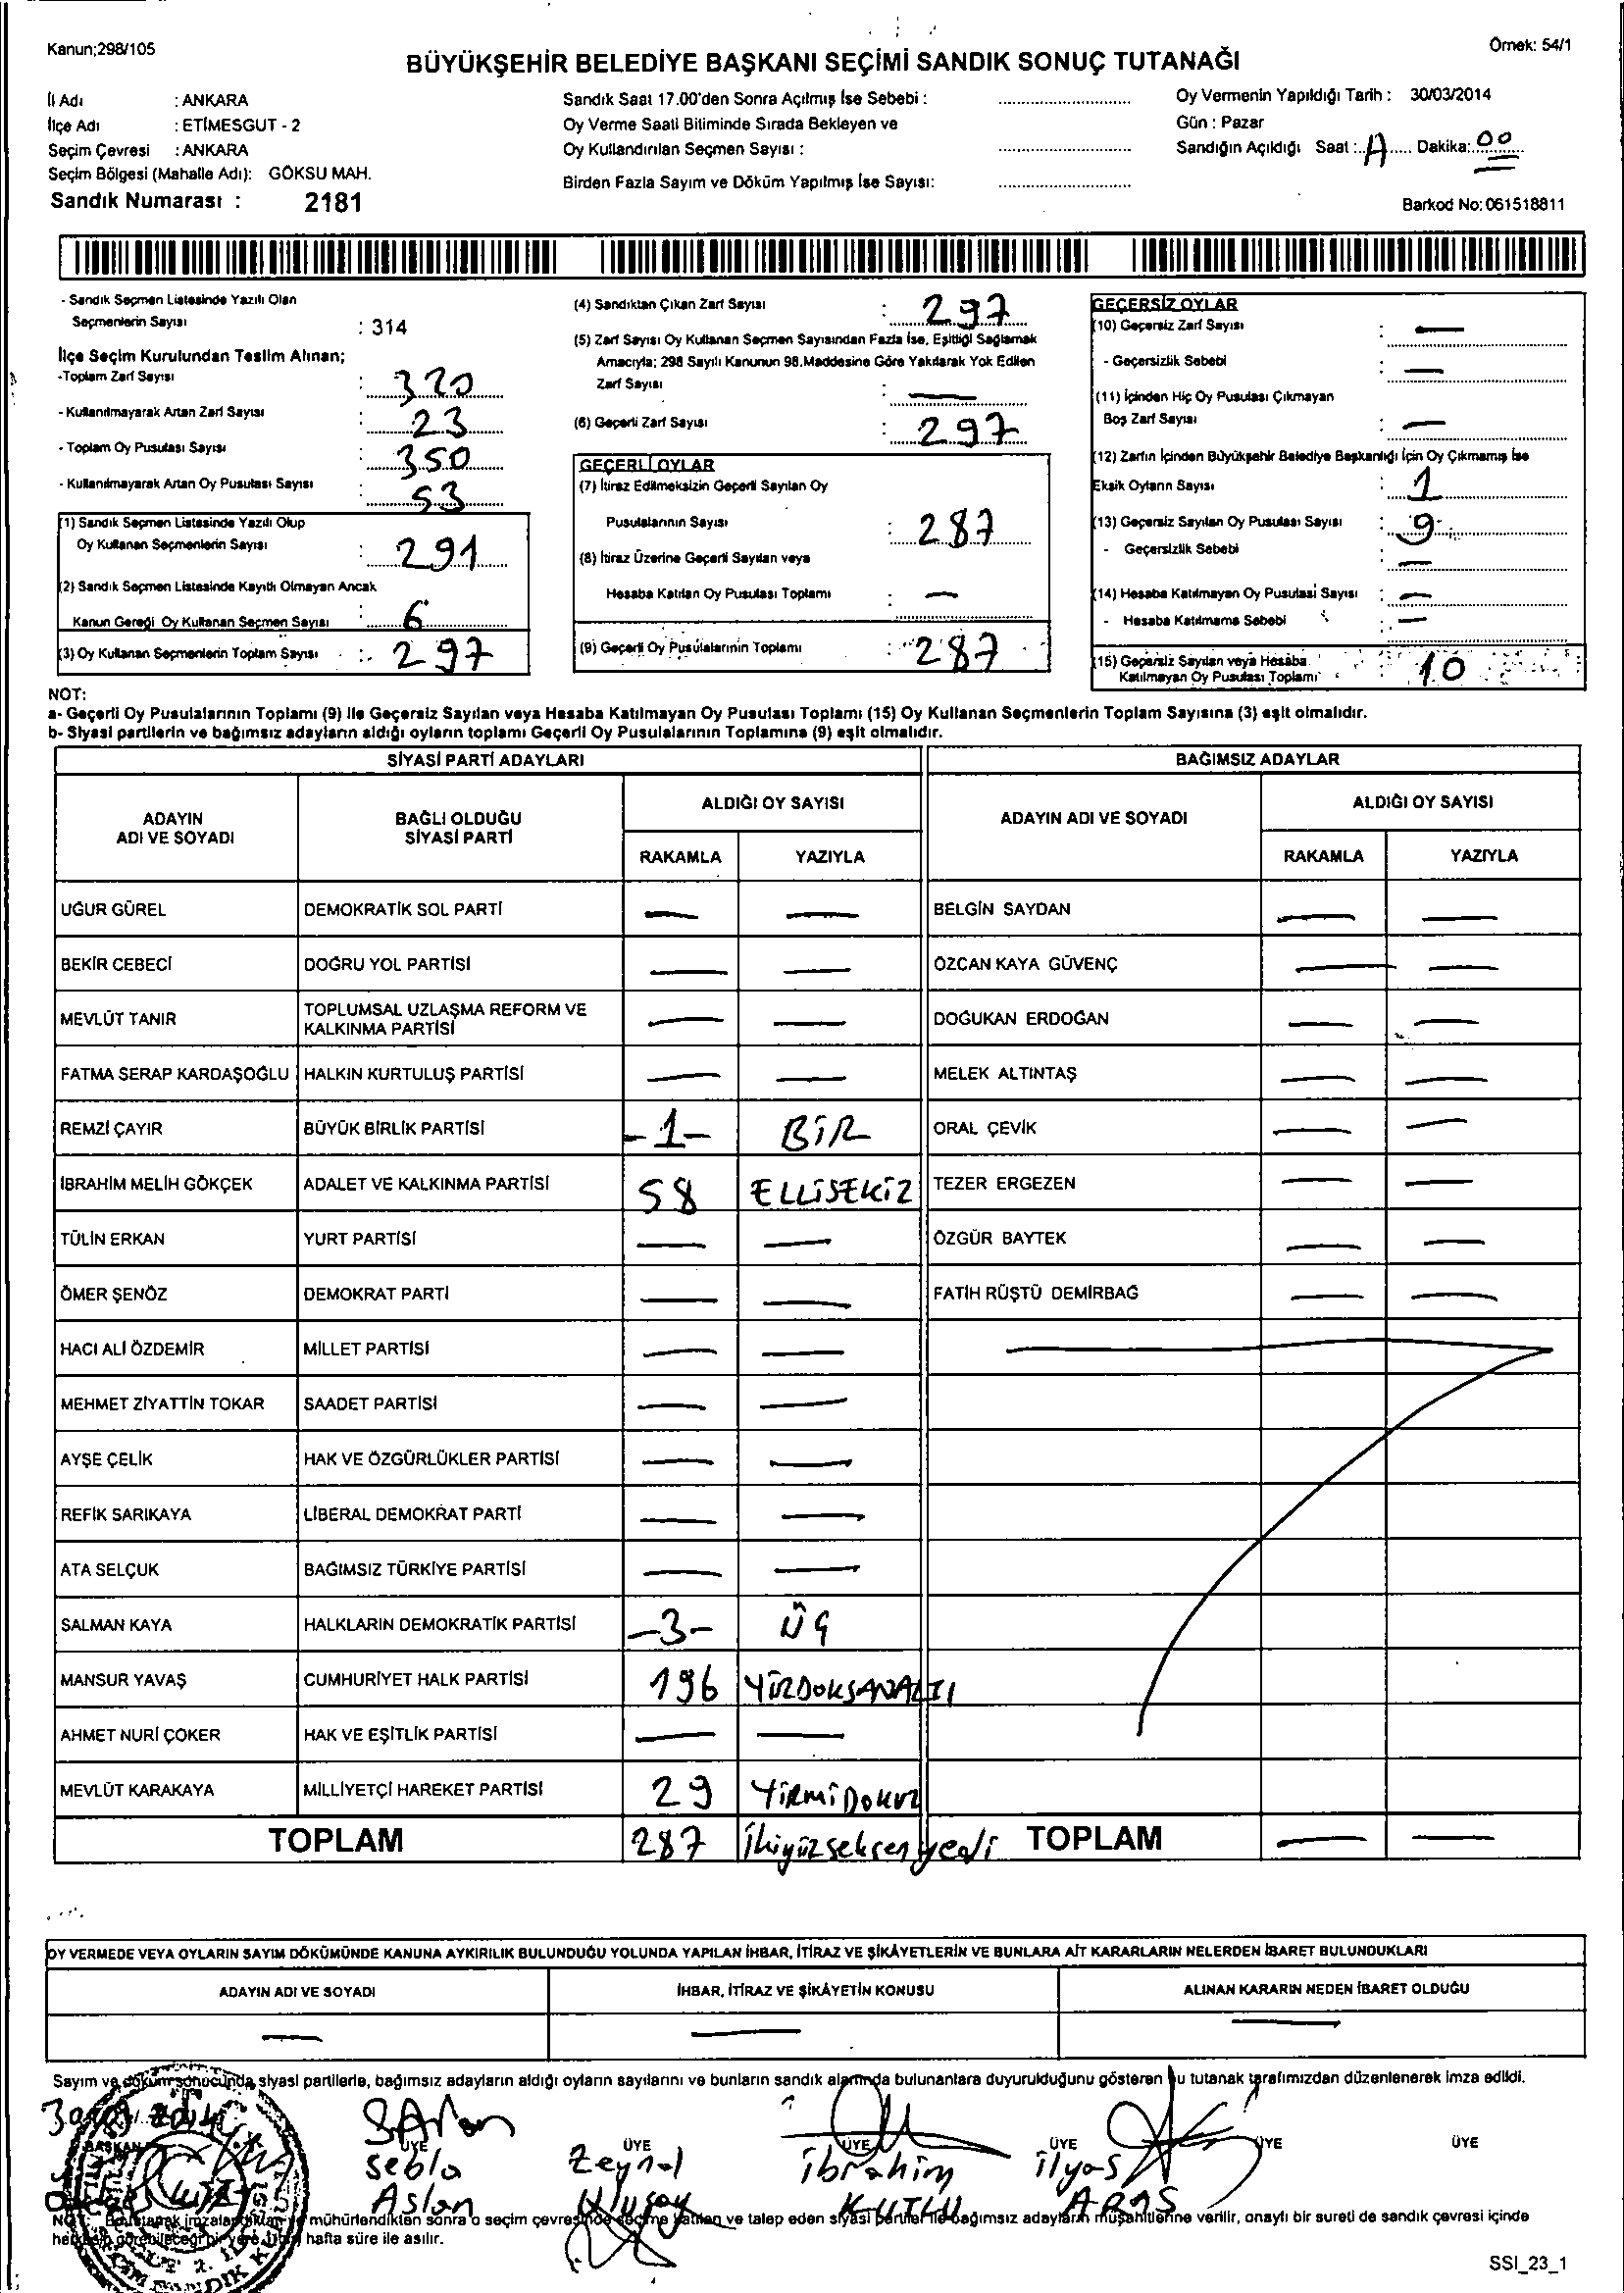 Kanun;298/105
Örnek: 54/1
BÜYÜKŞEHİR BELEDİYE BAŞKANI SEÇİMİ SANDIK SONUÇ TUTANAĞI
İl Adı : ANKARA
İlçe Adı : ETİMESGUT - 2
Seçim Çevresi : ANKARA
Seçim Bölgesi (Mahalle Adı): GÖKSU MAH.
Sandık Numarası : 2181
Sandık Saat 17.00'den Sonra Açılmış İse Sebebi :
Oy Verme Saati Bitiminde Sırada Bekleyen ve
Oy Kullandırılan Seçmen Sayısı :
Birden Fazla Sayım ve Döküm Yapılmış İse Sayısı:
Oy Vermenin Yapıldığı Tarih : 30/03/2014
Gün : Pazar
Sandığın Açıldığı Saat : Dakika: 00
Barkod No: 061518811
- Sandık Seçmen Listesinde Yazılı Olan
Seçmenlerin Sayısı : 314
İlçe Seçim Kurulundan Teslim Alınan;
-Toplam Zarf Sayısı : 320
- Kullanılmayarak Artan Zarf Sayısı : 23
- Toplam Oy Pusulası Sayısı : 350
- Kullanılmayarak Artan Oy Pusulası Sayısı : 53
(1) Sandık Seçmen Listesinde Yazılı Olup
Oy Kullanan Seçmenlerin Sayısı : 291
(2) Sandık Seçmen Listesinde Kayıtlı Olmayan Ancak
Kanun Gereği Oy Kullanan Seçmen Sayısı : 6
(3) Oy Kullanan Seçmenlerin Toplam Sayısı : 297
(4) Sandıktan Çıkan Zarf Sayısı : 297
(5) Zarf Sayısı Oy Kullanan Seçmen Sayısından Fazla İse, Eşitliği Sağlamak
Amacıyla; 298 Sayılı Kanunun 98.Maddesine Göre Yakılarak Yok Edilen
Zarf Sayısı : —
(6) Geçerli Zarf Sayısı : 297
GEÇERLİ OYLAR
(7) İtiraz Edilmeksizin Geçerli Sayılan Oy
Pusulalarının Sayısı : 287
(8) İtiraz Üzerine Geçerli Sayılan veya
Hesaba Katılan Oy Pusulası Toplamı : —
(9) Geçerli Oy Pusulalarının Toplamı : 287
GEÇERSİZ OYLAR
(10) Geçersiz Zarf Sayısı : —
- Geçersizlik Sebebi : —
(11) İçinden Hiç Oy Pusulası Çıkmayan
Boş Zarf Sayısı : —
(12) Zarfın İçinden Büyükşehir Belediye Başkanlığı İçin Oy Çıkmamış İse
Eksik Oyların Sayısı : 1
(13) Geçersiz Sayılan Oy Pusulası Sayısı : 9
- Geçersizlik Sebebi : —
(14) Hesaba Katılmayan Oy Pusulası Sayısı : —
- Hesaba Katılmama Sebebi : —
(15) Geçersiz Sayılan veya Hesaba
Katılmayan Oy Pusulası Toplamı : 10
NOT:
a- Geçerli Oy Pusulalarının Toplamı (9) ile Geçersiz Sayılan veya Hesaba Katılmayan Oy Pusulası Toplamı (15) Oy Kullanan Seçmenlerin Toplam Sayısına (3) eşit olmalıdır.
b- Siyasi partilerin ve bağımsız adayların aldığı oyların toplamı Geçerli Oy Pusulalarının Toplamına (9) eşit olmalıdır.
SİYASİ PARTİ ADAYLARI
BAĞIMSIZ ADAYLAR
ADAYIN ADI VE SOYADI
BAĞLI OLDUĞU SİYASİ PARTİ
ALDIĞI OY SAYISI
RAKAMLA YAZIYLA
ADAYIN ADI VE SOYADI
ALDIĞI OY SAYISI
RAKAMLA YAZIYLA
UĞUR GÜREL DEMOKRATİK SOL PARTİ — — BELGİN SAYDAN — —
BEKİR CEBECİ DOĞRU YOL PARTİSİ — — ÖZCAN KAYA GÜVENÇ — —
MEVLÜT TANIR TOPLUMSAL UZLAŞMA REFORM VE KALKINMA PARTİSİ — — DOĞUKAN ERDOĞAN — —
FATMA SERAP KARDAŞOĞLU HALKIN KURTULUŞ PARTİSİ — — MELEK ALTINTAŞ — —
REMZİ ÇAYIR BÜYÜK BİRLİK PARTİSİ -1- BİR ORAL ÇEVİK — —
İBRAHİM MELİH GÖKÇEK ADALET VE KALKINMA PARTİSİ 58 ELLİSEKİZ TEZER ERGEZEN — —
TÜLİN ERKAN YURT PARTİSİ — — ÖZGÜR BAYTEK — —
ÖMER ŞENÖZ DEMOKRAT PARTİ — — FATİH RÜŞTÜ DEMİRBAĞ — —
HACI ALİ ÖZDEMİR MİLLET PARTİSİ — —
MEHMET ZİYATTİN TOKAR SAADET PARTİSİ — —
AYŞE ÇELİK HAK VE ÖZGÜRLÜKLER PARTİSİ — —
REFİK SARIKAYA LİBERAL DEMOKRAT PARTİ — —
ATA SELÇUK BAĞIMSIZ TÜRKİYE PARTİSİ — —
SALMAN KAYA HALKLARIN DEMOKRATİK PARTİSİ -3- ÜÇ
MANSUR YAVAŞ CUMHURİYET HALK PARTİSİ 196 YÜZDOKSANALTI
AHMET NURİ ÇOKER HAK VE EŞİTLİK PARTİSİ — —
MEVLÜT KARAKAYA MİLLİYETÇİ HAREKET PARTİSİ 29 YİRMİDOKUZ
TOPLAM 287 İkiyüzseksenyedi TOPLAM — —
OY VERMEDE VEYA OYLARIN SAYIM DÖKÜMÜNDE KANUNA AYKIRILIK BULUNDUĞU YOLUNDA YAPILAN İHBAR, İTİRAZ VE ŞİKÂYETLERİN VE BUNLARA AİT KARARLARIN NELERDEN İBARET BULUNDUKLARI
ADAYIN ADI VE SOYADI İHBAR, İTİRAZ VE ŞİKÂYETİN KONUSU ALINAN KARARIN NEDEN İBARET OLDUĞU
— — —
Sayım ve döküm sonucunda siyasi partilerle, bağımsız adayların aldığı oyların sayılarını ve bunların sandık alanında bulunanlara duyurulduğunu gösteren bu tutanak tarafımızdan düzenlenerek imza edildi.
BAŞKAN ÜYE ÜYE ÜYE ÜYE ÜYE ÜYE
Sebla Zeynal İbrahim İlyas
Aslan Ulusoy KUTLU ARAS
NOT: Bu tutanak imzalandıktan ve mühürlendikten sonra o seçim çevresinde seçime katılan ve talep eden siyasi partiler ile bağımsız adayların müşahitlerine verilir, onaylı bir sureti de sandık çevresi içinde
herkesin görebileceği bir yere bir hafta süre ile asılır.
SSI_23_1